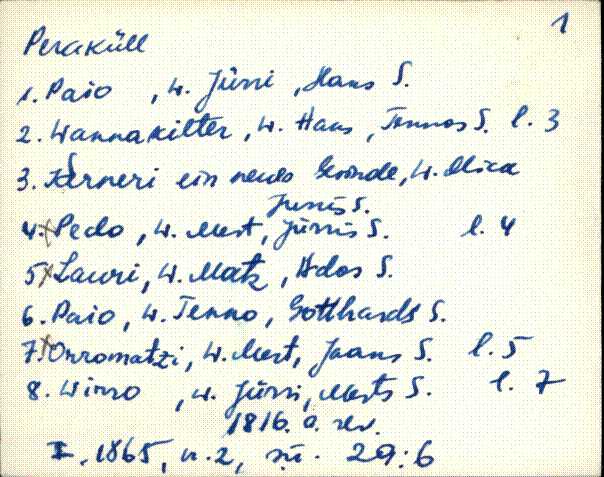 1
Peraküll
1. Paio, W. Jürri, Hans S.
2. Wannakilter, W. Hans, Tennos S. l. 3
3. Kerneri ein neues Gesinde, W. Mick
Jurris S.
4. Pedo, W. Mert, Jürris S. l. 4
5. Lauri, W. Matz, Ados S.
6. Paio, W. Tenno, Gotthards S.
7. Onromatzi, W. Mert, Jaans S. l. 5
8. Winno, W. Jürri, Merts S. l. 7
1816. a. rev.
I. 1865, n. 2, 29:6